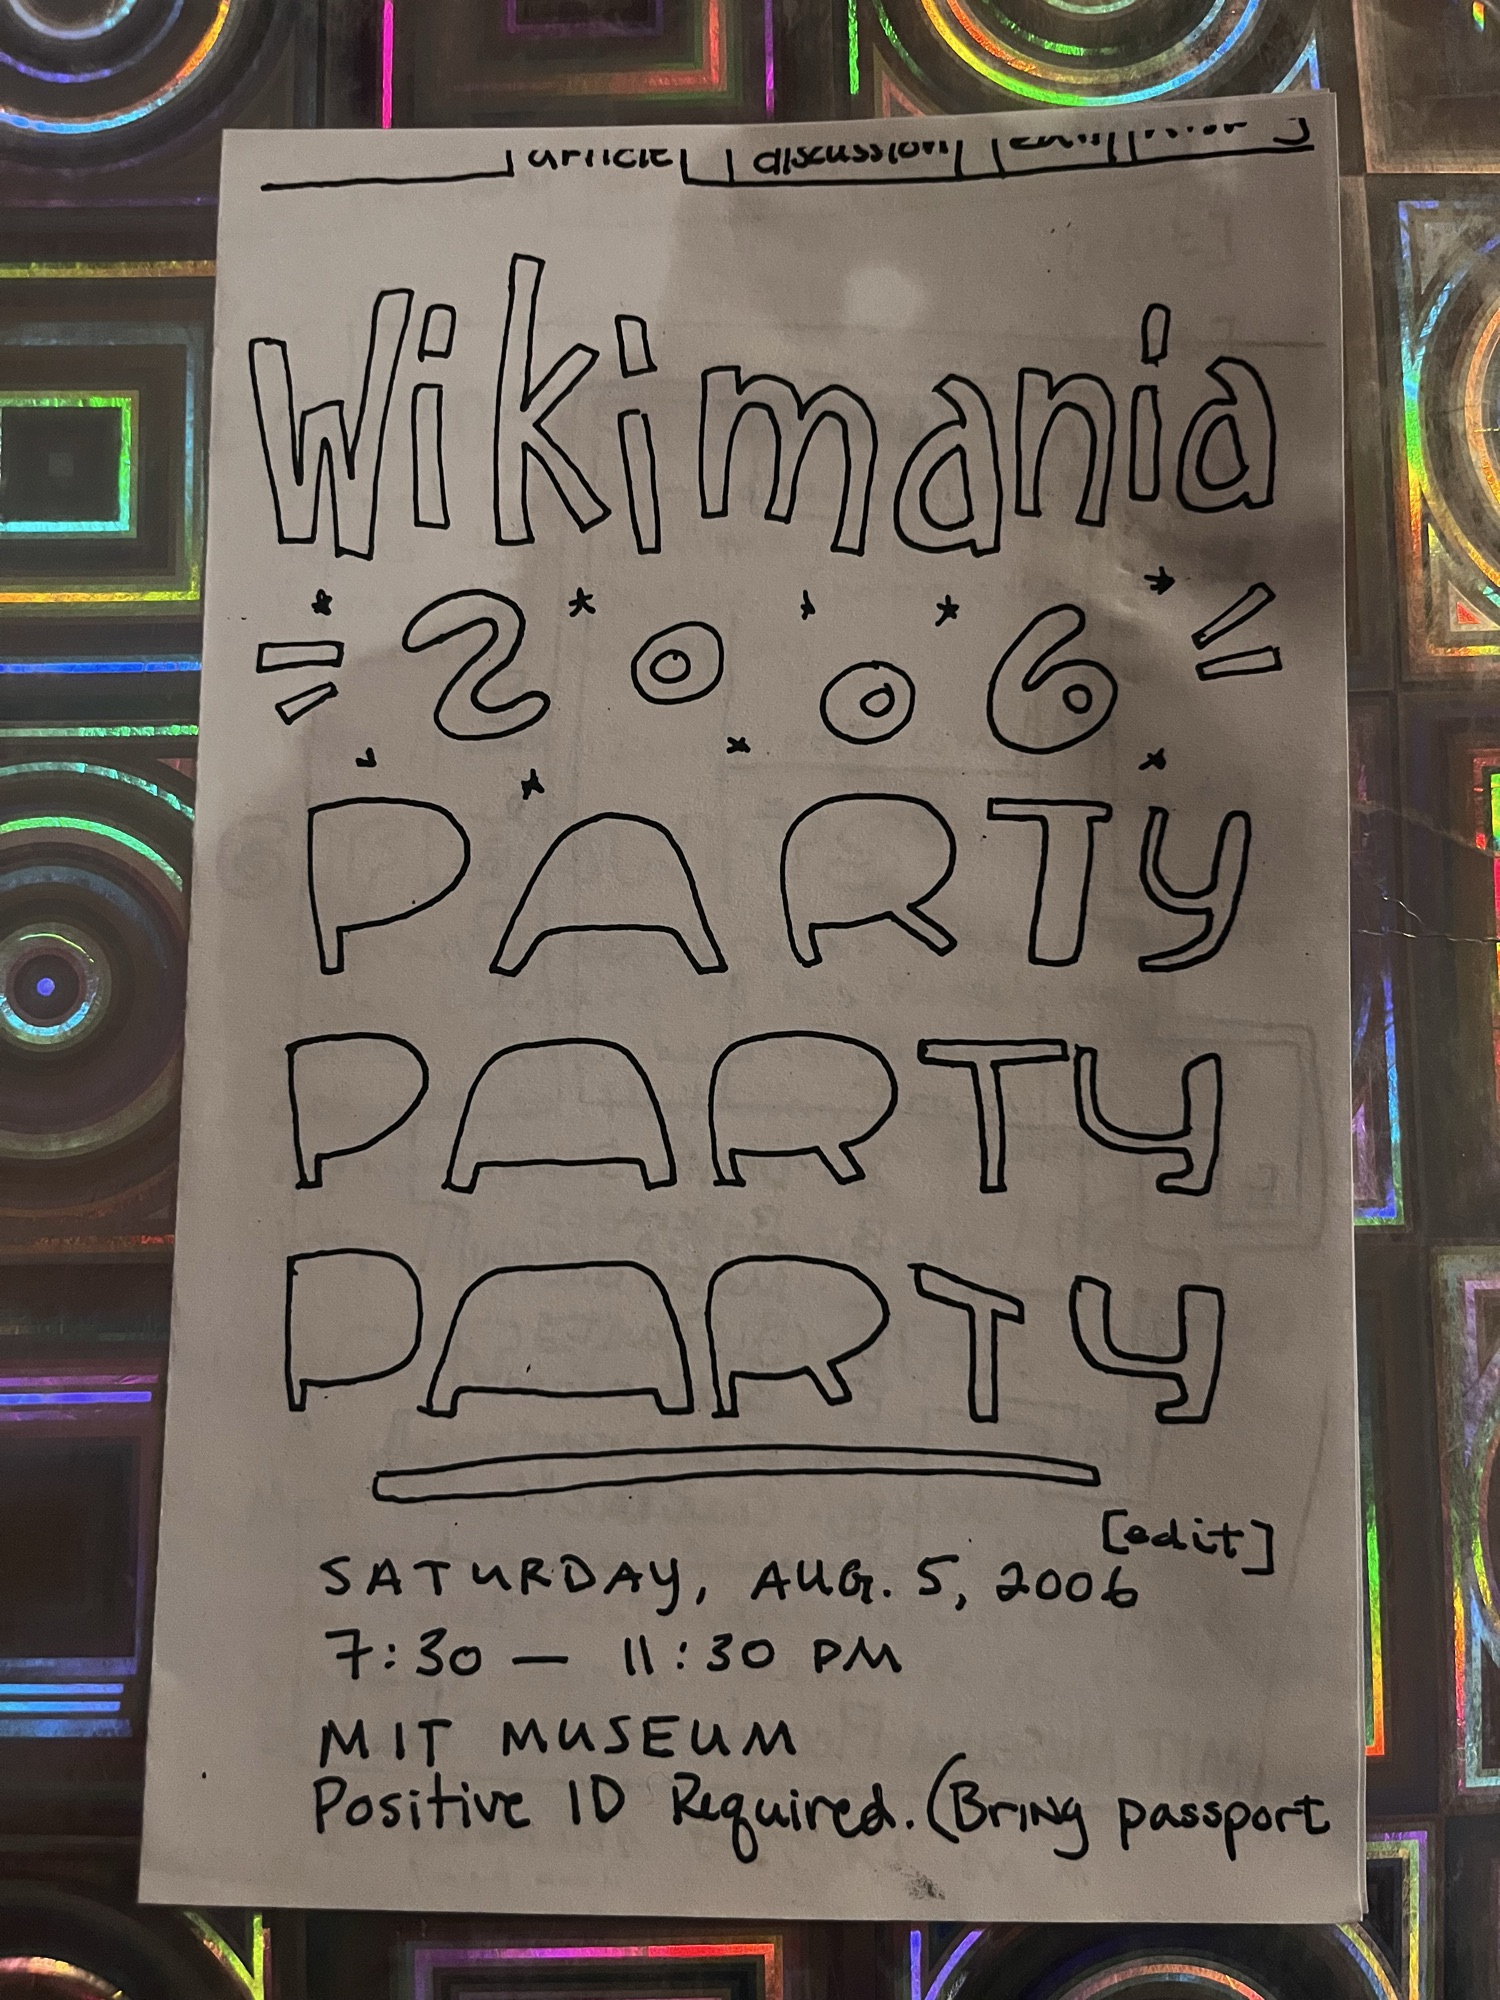 article discussion
Wikimania
2006
PARTY
PARTY
PARTY
[edit]
SATURDAY, AUG. 5, 2006
7:30 — 11:30 PM
MIT MUSEUM
Positive ID Required. (Bring passport